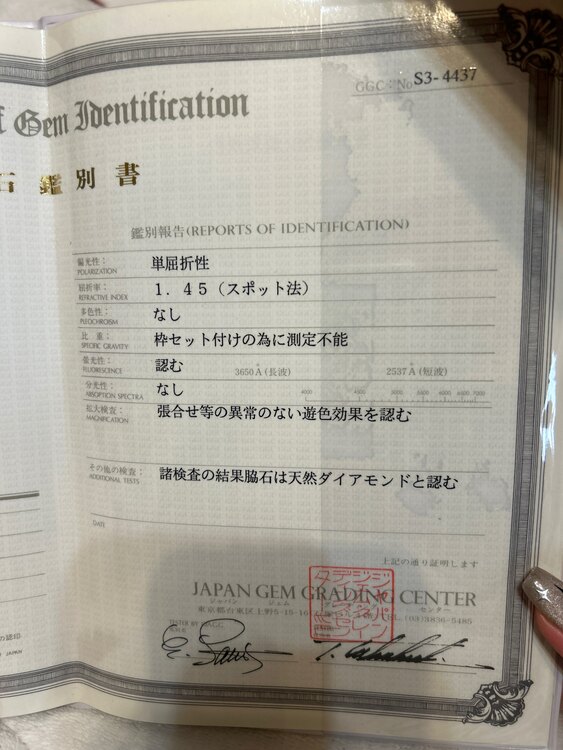 GGC: No S3-4437
f Gem Identification
石鑑別書
鑑別報告(REPORTS OF IDENTIFICATION)
偏光性: 単屈折性
POLARIZATION
屈折率: 1.45(スポット法)
REFRACTIVE INDEX
多色性: なし
PLEOCHROISM
比 重: 枠セット付けの為に測定不能
SPECIFIC GRAVITY
蛍光性: 認む 3650Å(長波) 2537Å(短波)
FLUORESCENCE
分光性: なし
ABSOPTION SPECTRA 4000 4500 5000 5500 6000 6500 7000
拡大検査: 張合せ等の異常のない遊色効果を認む
MAGNIFICATION
その他の検査: 諸検査の結果脇石は天然ダイアモンドと認む
ADDITIONAL TESTS
DATE
上記の通り証明します
JAPAN GEM GRADING CENTER
ジャパン ジェム センター
東京都台東区上野5-15-16 TEL.(03)3836-5485
の認印